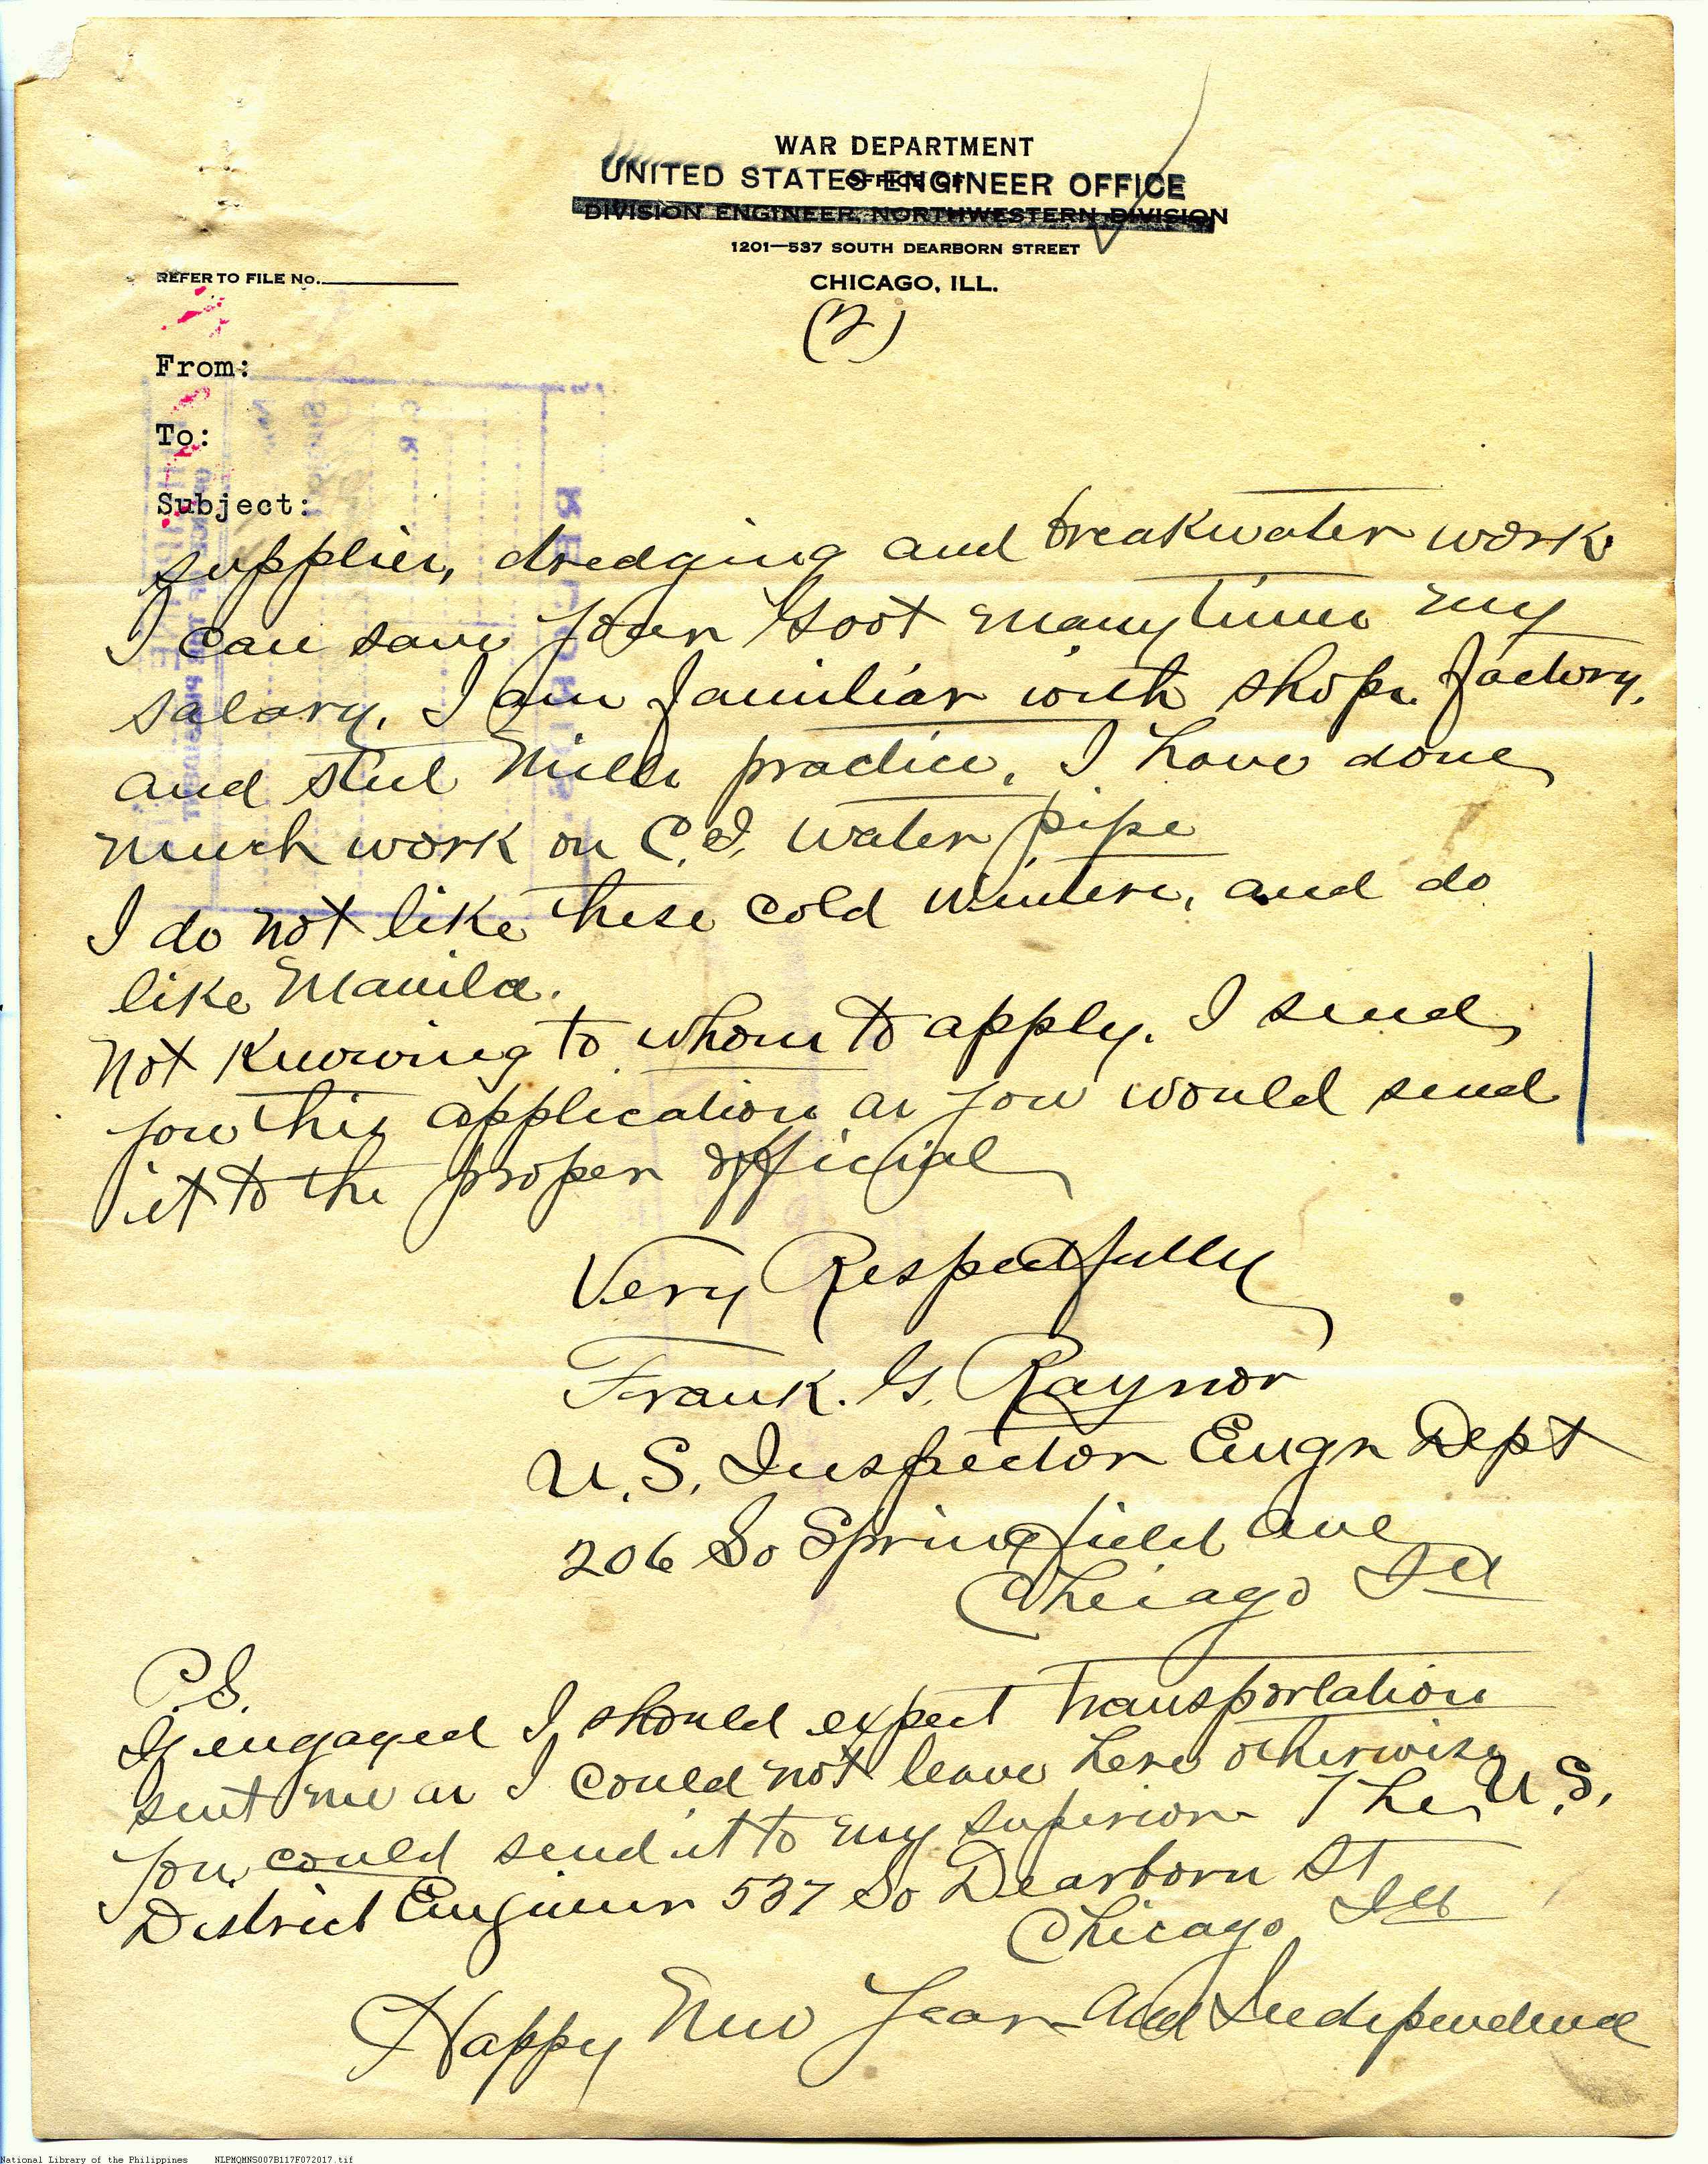 WAR DEPARTMENT
UNITED STATES ENGINEER OFFICE
OFFICE OF
DIVISION ENGINEER, NORTHWESTERN DIVISION
1201—537 SOUTH DEARBORN STREET
REFER TO FILE No.
CHICAGO, ILL.
(2)
From:
To:
Subject:
supplies, dredging and breakwater work
I can save your Govt many times my
salary. I am familiar with shops. factory.
and steel mills practice. I have done
much work on C.I. water pipe
I do not like these cold winters, and do
like Manila.
Not Knowing to whom to apply. I send
you this application as you would send
it to the proper official
Very Respectfully
Frank. G. Raynor
U.S. Inspector Engr Dept
206 So Springfield Ave
Chicago Ill
P.S.
If engaged I should expect transportation
sent me as I could not leave here otherwise
You could send it to my superior The U.S.
District Engineer 537 So Dearborn St
Chicago Ill
Happy New Year and Independence
RECORDS
National Library of the Philippines NLPMQMNS007B117F072017.tif